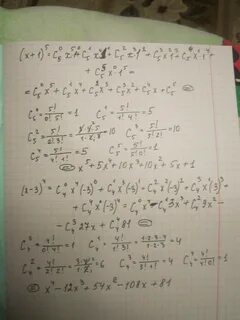 (x+1)⁵ = C₅⁰x⁵1⁰ + C₅¹x⁴1¹ + C₅²x³1² + C₅³x²1³ + C₅⁴x·1⁴ +
+ C₅⁵x⁰·1⁵ =
= C₅⁰x⁵ + C₅¹x⁴ + C₅²x³ + C₅³x² + C₅⁴x + C₅⁵
C₅⁰ = 5!/0!5! = 1 C₅¹ = 5!/1!4! = 5
C₅² = 5!/2!3! = 4·5/1·2 = 10 C₅³ = 5!/3!2! = 10
C₅⁴ = 5!/4!1! = 5 C₅⁵ = 5!/5!0! = 1
= x⁵ + 5x⁴ + 10x³ + 10x² + 5x + 1
(x-3)⁴ = C₄⁰x⁴(-3)⁰ + C₄¹x³(-3)¹ + C₄²x²(-3)² + C₄³x(-3)³ +
+ C₄⁴x⁰(-3)⁴ = C₄⁰x⁴ - C₄¹3x³ + C₄²9x² -
- C₄³27x + C₄⁴81 =
C₄⁰ = 4!/0!4! = 1 C₄¹ = 4!/1!3! = 1·2·3·4/1·2·3 = 4
C₄² = 4!/2!2! = 3·4/1·2 = 6 C₄³ = 4!/3!1! = 4 C₄⁴ = 4!/4!0! = 1
= x⁴ - 12x³ + 54x² - 108x + 81